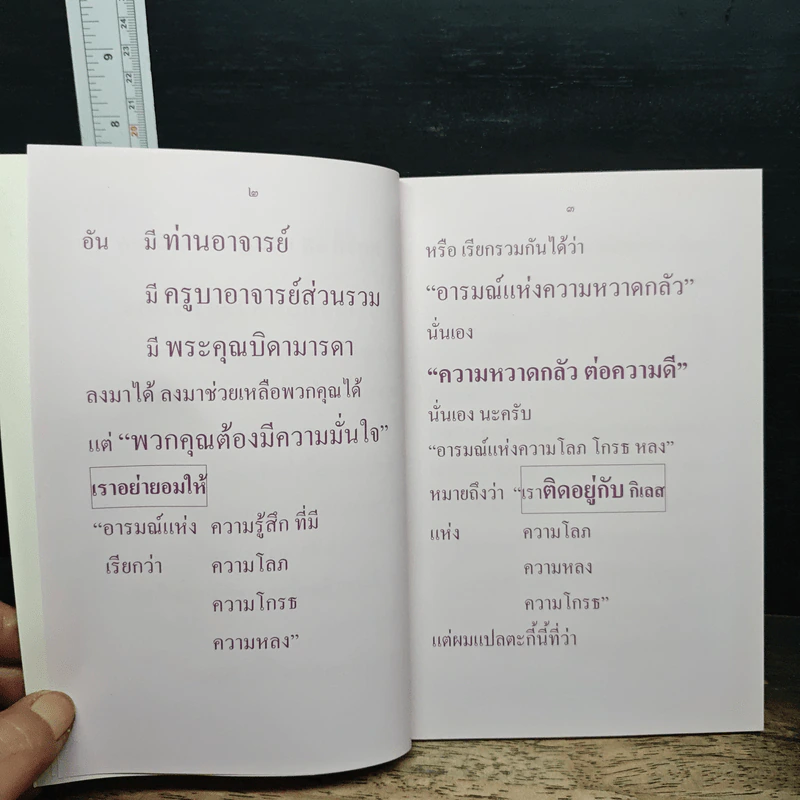 9
8
24
23
22
21
20
๒
อัน มี ท่านอาจารย์
มี ครูบาอาจารย์ส่วนรวม
มี พระคุณบิดามารดา
ลงมาได้ ลงมาช่วยเหลือพวกคุณได้
แต่ “พวกคุณต้องมีความมั่นใจ”
เราอย่ายอมให้
“อารมณ์แห่ง ความรู้สึก ที่มี
เรียกว่า ความโลภ
ความโกรธ
ความหลง”
๓
หรือ เรียกรวมกันได้ว่า
“อารมณ์แห่งความหวาดกลัว”
นั่นเอง
“ความหวาดกลัว ต่อความดี”
นั่นเอง นะครับ
“อารมณ์แห่งความโลภ โกรธ หลง”
หมายถึงว่า “เราติดอยู่กับ กิเลส
แห่ง ความโลภ
ความหลง
ความโกรธ”
แต่ผมแปลตะกี้นี้ที่ว่า